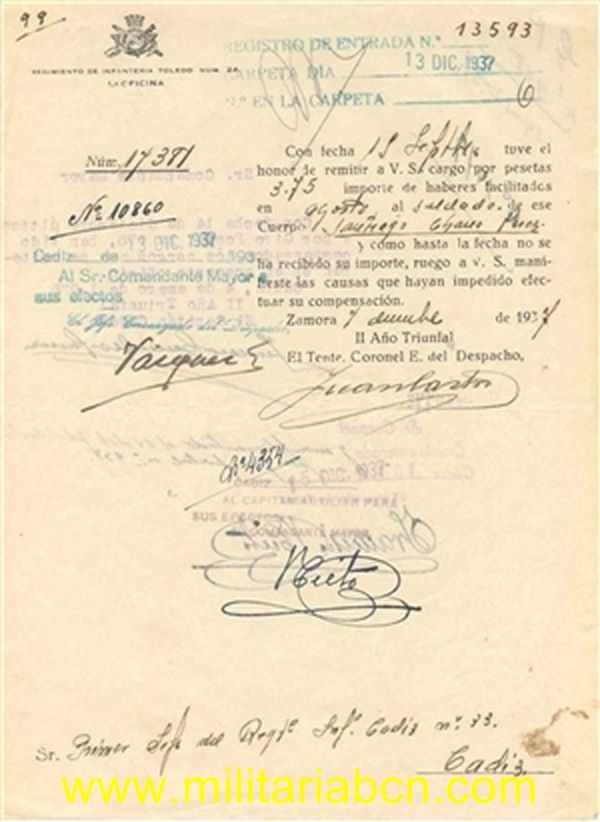 99
13593
REGIMIENTO DE INFANTERIA TOLEDO NÚM. 26
1.ª OFICINA
REGISTRO DE ENTRADA N.º
CARPETA DÍA 13 DIC. 1937
N.º EN LA CARPETA 6
Núm. 17381
Nº 10860
13 DIC. 1937
Cadiz de de 193
Al Sr. Comandante Mayor a
sus efectos.
El Jefe Encargado del Despacho,
Vazquez
Con fecha 15 Sepbre. tuve el
honor de remitir a V. S. cargo por pesetas
3.75 importe de haberes facilitados
en agosto al soldado de ese
Cuerpo Santiago
y como hasta la fecha no se
ha recibido su importe, ruego a v. S. mani-
fieste las causas que hayan impedido efec-
tuar su compensación.
Zamora 7 dicmbre de 1937
II Año Triunfal
El Tente. Coronel E. del Despacho,
Juan Castro
Nº 4354
CADIZ
AL CAPITAN AUXILIAR PARA
SUS EFECTOS
EL COMANDANTE MAYOR
Nieto
Sr. Primer Jefe del Regtº Infª Cadiz nº 33.
Cadiz
www.militariabcn.com